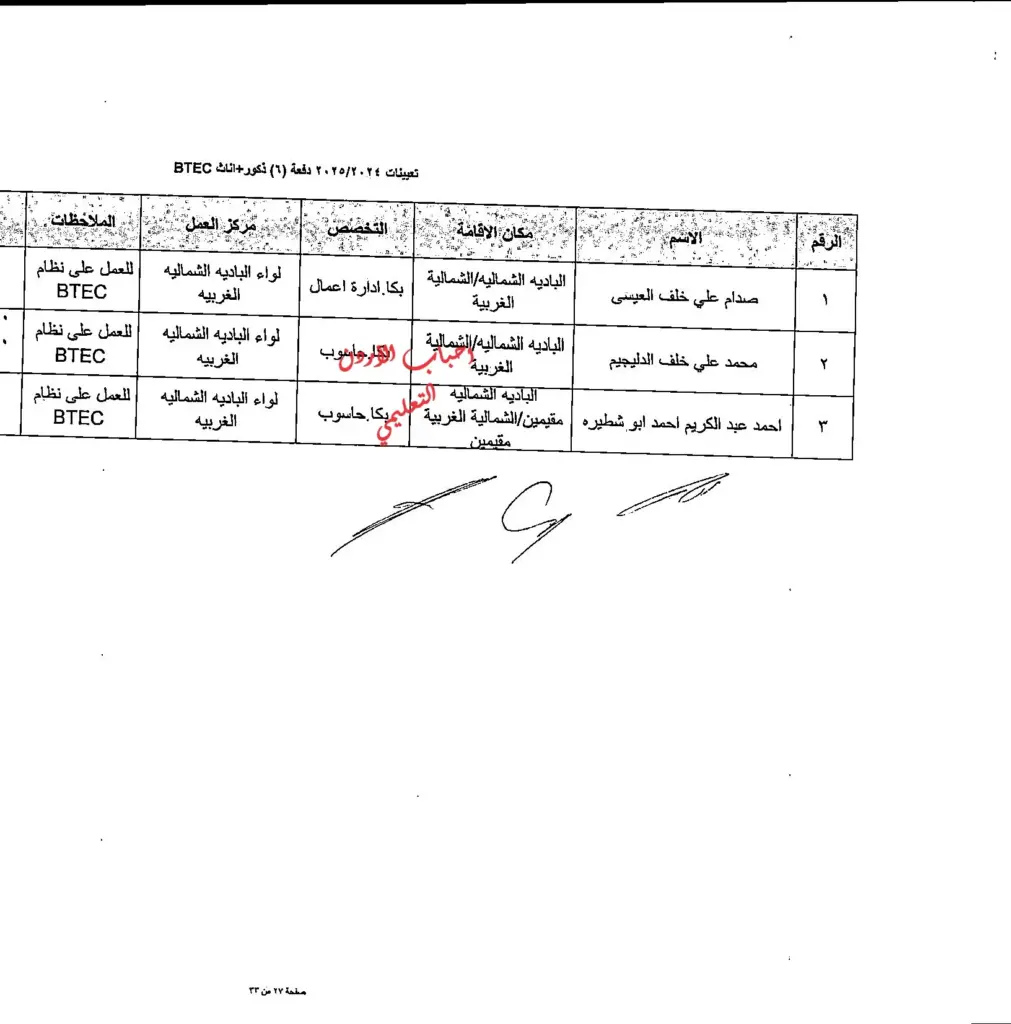 تعيينات ٢٠٢٥/٢٠٢٤ دفعة (٦) ذكور+اناث BTEC
الرقم الاسم مكان الاقامة التخصص مركز العمل الملاحظات
١ صدام علي خلف العيسى الباديه الشماليه/الشمالية الغربية بكا.ادارة اعمال لواء الباديه الشماليه الغربيه للعمل على نظام BTEC
٢ محمد علي خلف الدليجيم الباديه الشماليه/الشمالية الغربية بكا.حاسوب لواء الباديه الشماليه الغربيه للعمل على نظام BTEC
٣ احمد عبد الكريم احمد ابو شطيره الباديه الشماليه مقيمين/الشمالية الغربية مقيمين بكا.حاسوب لواء الباديه الشماليه الغربيه للعمل على نظام BTEC
أحباب الأردن
التعليمي
صفحة ٢٧ من ٣٣